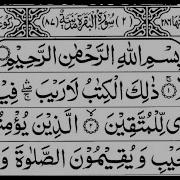 (۲) سُورَةُ الْبَقَرَةِ مَدَنِيَّةٌ (۸۷)
بِسْمِ اللّٰهِ الرَّحْمٰنِ الرَّحِيْمِ
ذٰلِكَ الْكِتٰبُ لَا رَيْبَ ۛ فِيْهِ
لِّلْمُتَّقِيْنَ ۙ۲ الَّذِيْنَ يُؤْمِنُوْ
وَيُقِيْمُوْنَ الصَّلٰوةَ وَ